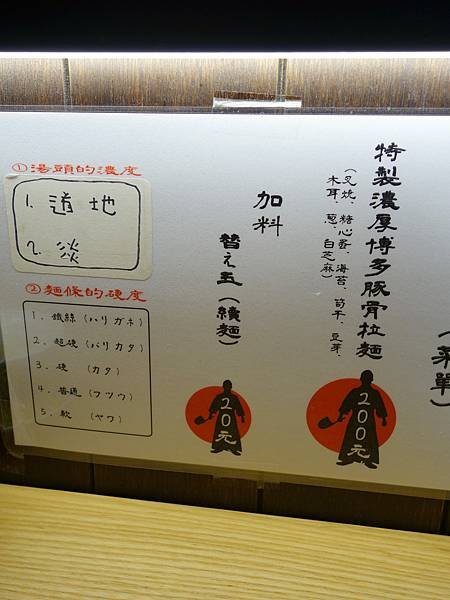 （菜單）
特製濃厚博多豚骨拉麵
（叉燒、糖心蛋、海苔、筍干、豆芽、
木耳、蔥、白芝麻）
200元
加料
替え玉（續麵）
20元
①湯頭的濃度
1. 道地
2. 淡
②麵條的硬度
1. 鐵線（ハリガネ）
2. 超硬（バリカタ）
3. 硬（カタ）
4. 普通（フツウ）
5. 軟（ヤワ）